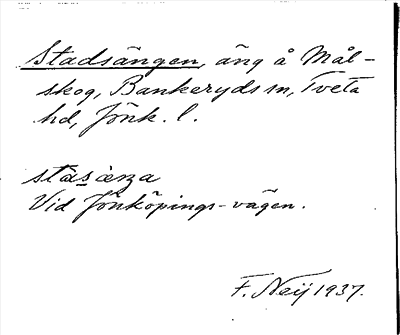 Stadsängen, äng å Mål-
skog, Bankeryds sn, Tveta
hd, Jönk. l.
stàsæ̀ŋa
Vid Jönköpings-vägen.
F. Neij 1937.